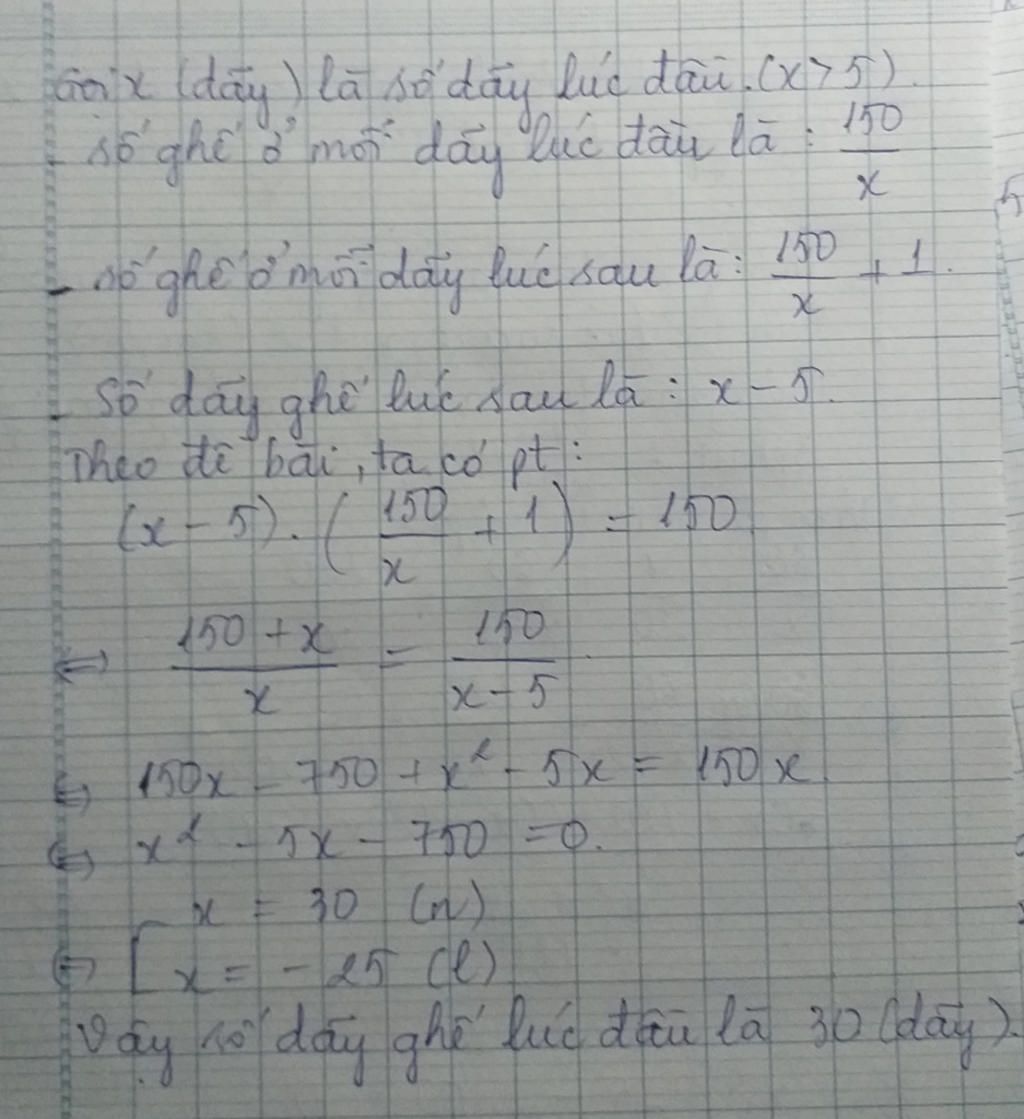 Gọi x (dãy) là số dãy lúc đầu. (x > 5).
- số ghế ở mỗi dãy lúc đầu là : 150/x
- số ghế ở mỗi dãy lúc sau là : 150/x + 1.
- Số dãy ghế lúc sau là : x - 5.
Theo đề bài, ta có pt :
(x - 5) . (150/x + 1) = 150
⇔ (150 + x)/x = 150/(x - 5)
⇔ 150x - 750 + x² - 5x = 150x
⇔ x² - 5x - 750 = 0.
⇔ [ x = 30 (n)
x = - 25 (l)
Vậy số dãy ghế lúc đầu là 30 (dãy).